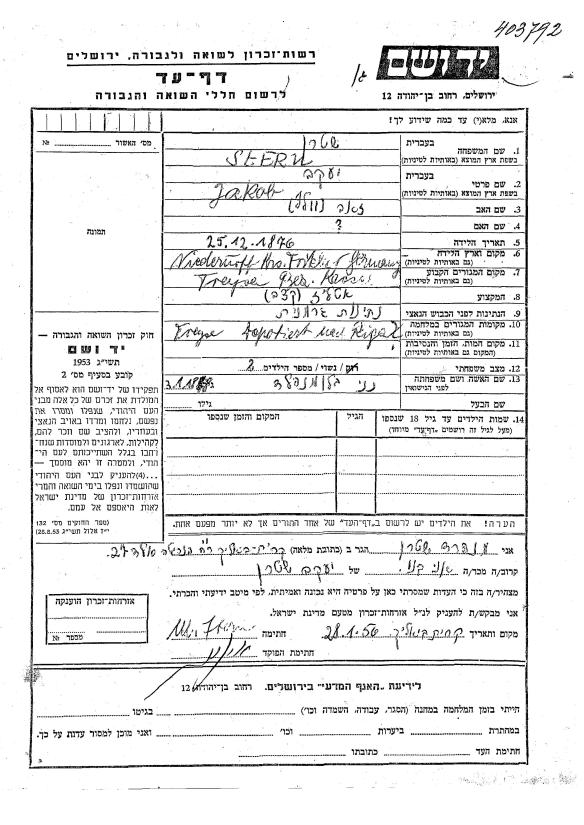 403792
רשות-זכרון לשואה ולגבורה, ירושלים
יד ושם
דף-עד
לרשום חללי השואה והגבורה
ירושלים, רחוב בן-יהודה 12
אנא, מלא(י) עד כמה שידוע לך!
מס' האשור
№
תמונה
1. שם המשפחה
בעברית
שטרן
בשפת ארץ המוצא (באותיות לטיניות)
STERN
2. שם פרטי
בעברית
יעקב
בשפת ארץ המוצא (באותיות לטיניות)
Jakob
3. שם האב
4. שם האם
?
5. תאריך הלידה
25.12.1876
6. מקום וארץ הלידה
(גם באותיות לטיניות)
Germany
7. מקום המגורים הקבוע
(גם באותיות לטיניות)
Treysa Bez. Kassel
8. המקצוע
9. הנתינות לפני הכבוש הנאצי
נתינות גרמנית
10. מקומות המגורים במלחמה
(גם באותיות לטיניות)
Treysa
11. מקום המות, הזמן והנסיבות
(המקום גם באותיות לטיניות)
Deportiert nach Riga
12. מצב משפחתי
רווק / נשוי / מספר הילדים 2
13. שם האשה ושם משפחתה
לפני הנישואין
בלומנטלד
שם הבעל
גילו
14. שמות הילדים עד גיל 18 שנספו
(מעל לגיל זה רושמים "דף-עד" מיוחד)
הגיל
המקום והזמן שנספו
חוק זכרון השואה והגבורה —
יד ושם
תשי"ג 1953
קובע בסעיף מס' 2
תפקידו של יד-ושם הוא לאסוף אל
המולדת את זכרם של כל אלה מבני
העם היהודי, שנפלו ומסרו את
נפשם, נלחמו ומרדו באויב הנאצי
ובעוזריו, ולהציב שם וזכר להם,
לקהילות, לארגונים ולמוסדות שנח־
רבו בגלל השתייכותם לעם היהו־
די, ולמטרה זו יהא מוסמך —
...(4) להעניק לבני העם היהודי
שהושמדו ונפלו בימי השואה והמרי
אזרחות-זכרון של מדינת ישראל
לאות היאספם אל עמם.
(ספר החוקים מס' 132
י"ז אלול תשי"ג 28.8.53)
הערה! את הילדים יש לרשום ב"דף-העד" של אחד ההורים אך לא יותר מפעם אחת.
אני שטרן הגר ב (כתובת מלאה) קרית-ביאליק 27
קרוב/ה מכר/ה של יעקב שטרן
מצהיר/ה בזה כי העדות שמסרתי כאן על פרטיה היא נכונה ואמיתית, לפי מיטב ידיעתי והכרתי.
אני מבקש/ת להעניק לנ"ל אזרחות-זכרון מטעם מדינת ישראל.
מקום ותאריך קרית ביאליק 28.1.56 חתימה
חתימת הפוקד
אזרחות-זכרון הוענקה
מספר №
לידיעת "האגף המדעי" בירושלים. רחוב בן-יהודה 12
הייתי בזמן המלחמה במחנה (הסגר, עבודה, השמדה וכו') בגיטו
במחתרת ביערות וכו' ואני מוכן למסור עדות על כך.
חתימת העד כתובתו